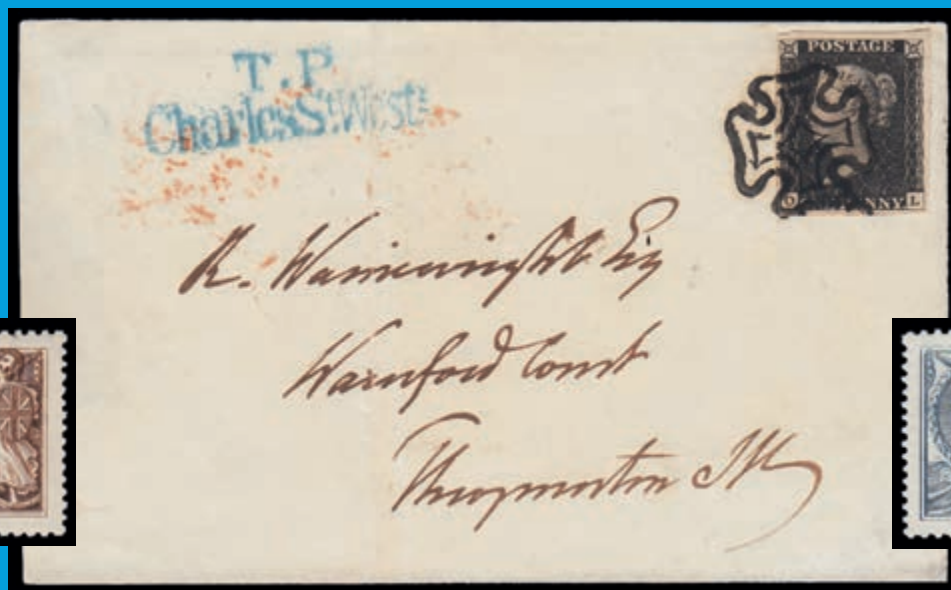 T.P
Charles St Westr
POSTAGE
O NNY L
R. Wainewright Esq
Warnford Court
Throgmorton St